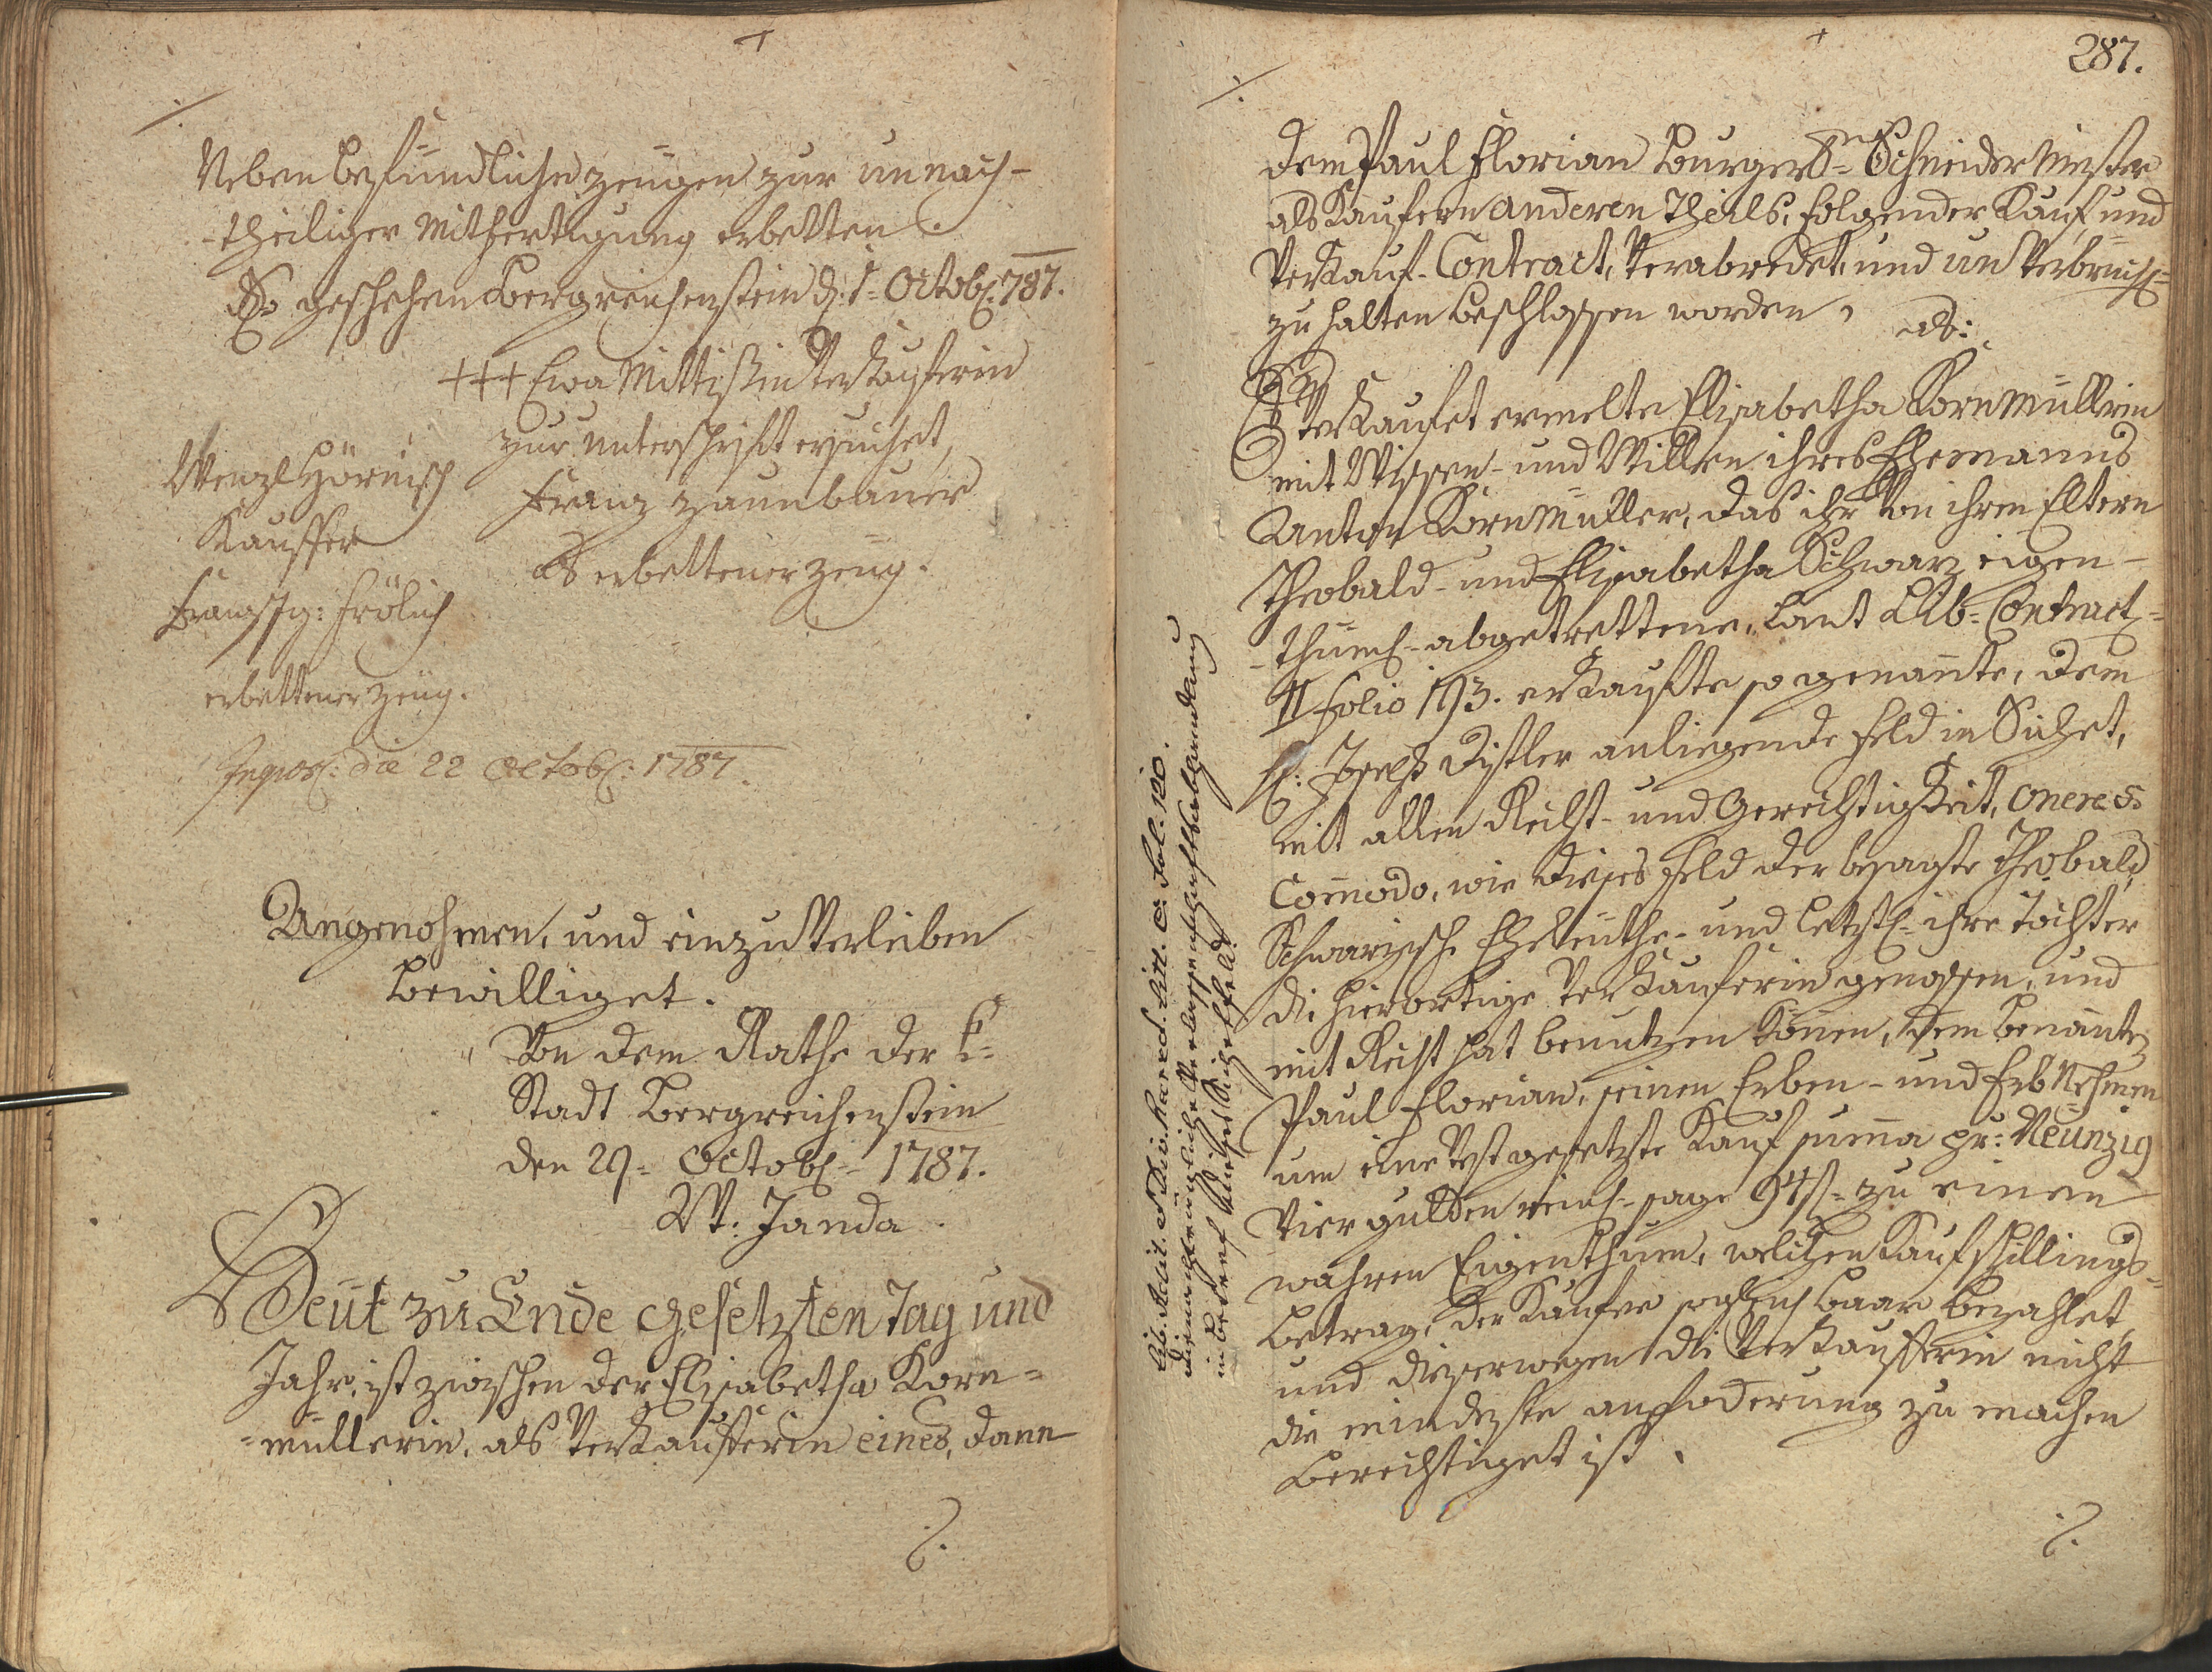 Neben befündlichen zeugen zur unnach-
-theiliger Mitfertigung erbetten.
So geschehen Bergreichenstein d: 1= Octob: 787.
+++ Ewa Mittißin Verkauferin
zur Unterschrift ersuchet,
Franz Zaunbauer
als erbettener Zeüg.
Wenzl Hörnisch
Kauffer
Franz Ig: Frölich
erbettener Zeüg.
Ingros: die 22 Octob: 1787.
Angenohmen, und einzuverleiben
bewilliget.
Von dem Rathe der k=
Stadt Bergreichenstein
den 29= Octob= 1787.
Vt: Janda
Heüt zu Ende gesetzten Tag und
Jahr, ist zwischen der Elisabetha Korn=
=müllerin, als Verkaufferin eines, dann
./.
287.
./.
dem Paul Florian Burgerl= Schneider Meister
als Kaufern anderen Theils, folgender Kauf, und
Verkauf-Contract, verabredet, und unverbrüchl=
zu halten beschlossen worden, als:
Verkaufet ermelte Elisabetha Kornmüllerin
mit Wissen- und Willen ihres Ehemanns
Anton Kornmüller, das ihr von ihren Eltern
Theobald- und Elisabetha Schwarz eigen-
-thüml- abgetrettene, laut Lib= Contract=
folio 193. erkaufte so genannte, dem
H: Joseph Distler anliegende Feld in Sichet,
mit allen Recht- und Gerechtigkeit, onere &
Commodo, wie dieses Feld der besagte Theobald
Schwarzische Eheleüthe- und letztl= ihre Tochter
die hierortige Verkauferin genossen, und
mit Recht hat benutzen können, dem benannten
Paul Florian, seinen Erben- und Erbnehmen
um eine vest gesetzte Kauf summa pr: Neünzig
Vier gulden reinl- sage 94 f= zu einem
wahren Eigenthum, welchen Kaufschillings-
betrag, der Kaufer sogleich baar bezahlet,
und diesserwegen die Verkaufferin nicht
die mindeste anfoderung zu machen
berechtiget ist.
./.